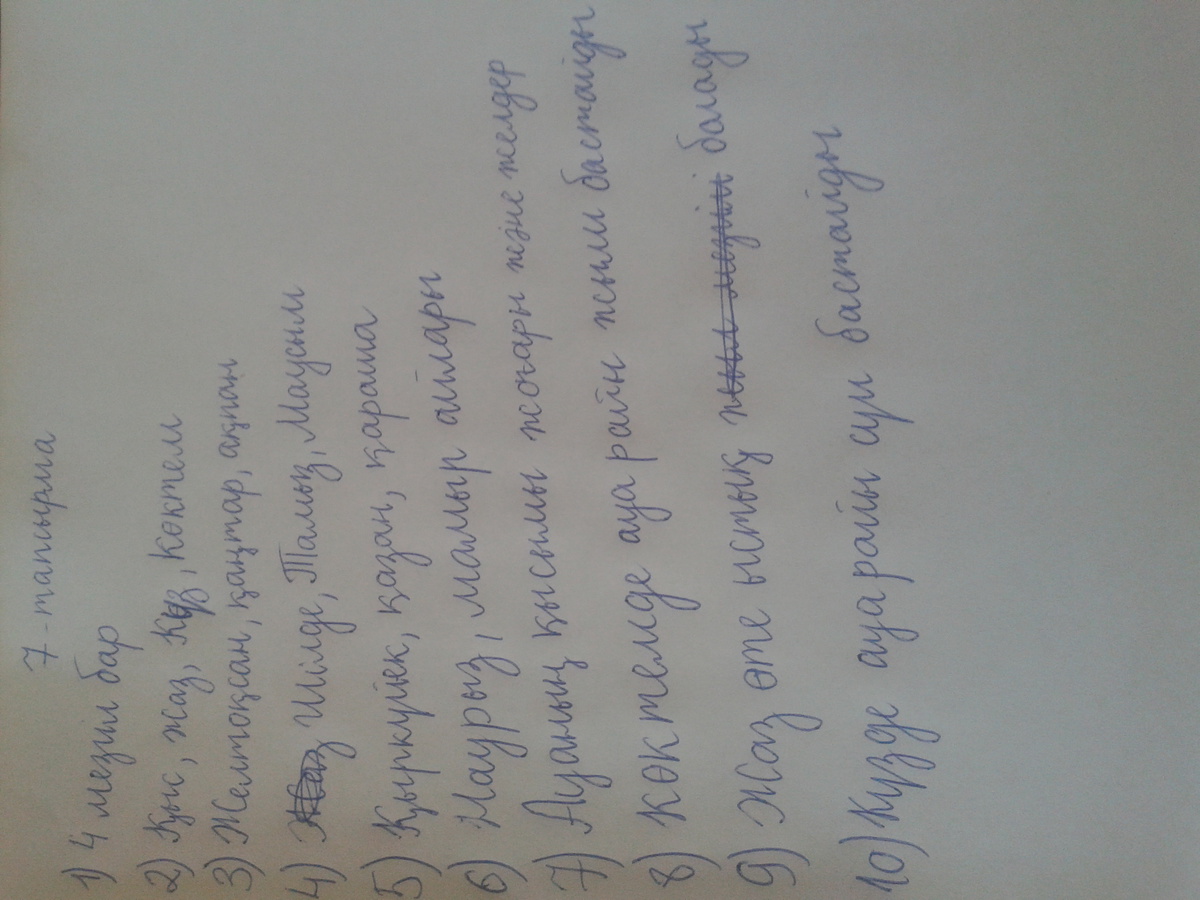 7-тапсырма
1) 4 мезгил бар
2) Қыс, жаз, Күз, Көктем
3) Желтоқсан, қаңтар, ақпан
4) Шілде, Тамыз, Маусым
5) Қыркүйек, қазан, қараша
6) Наурыз, мамыр айлары
7) Ауаның қысымы жоғары және желдер
8) Көктемде ауа райы жылы бастайды
9) Жаз өте ыстық болады
10) Күзде ауа райы суы бастайды